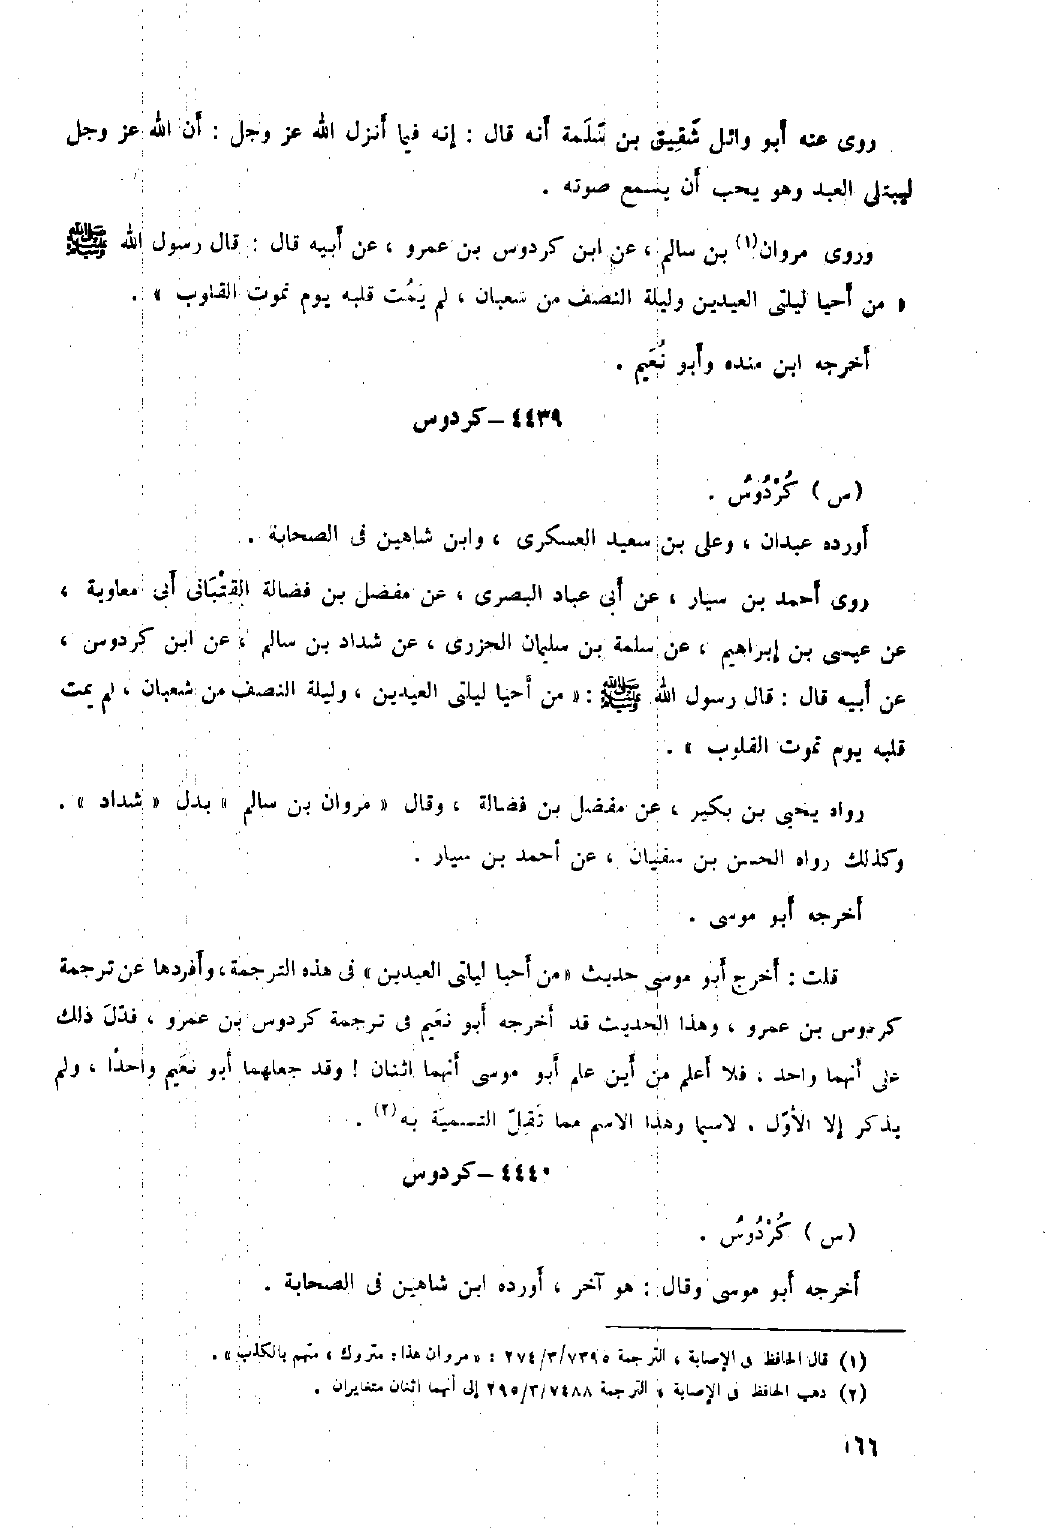 روى عنه أبو وائل شَقِيق بن سَلَمة أنه قال : إنه فيما أنزل الله عز وجل : أن الله عز وجل
ليبتلى العبد وهو يحب أن يسمع صوته .
وروى مروان(١) بن سالم ، عن ابن كردوس بن عمرو ، عن أبيه قال : قال رسول الله ﷺ
« من أحيا ليلتى العيدين وليلة النصف من شعبان ، لم يَمُت قلبه يوم تموت القلوب » .
أخرجه ابن منده وأبو نُعَيم .
٤٤٣٩ – كردوس
( س ) كُرْدُوسُ .
أورده عبدان ، وعلى بن سعيد العسكرى ، وابن شاهين فى الصحابة .
روى أحمد بن سيار ، عن أبى عباد البصرى ، عن مفضل بن فضالة القِتْبَانى أبى معاوية ،
عن عيسى بن إبراهيم ، عن سلمة بن سليمان الجزرى ، عن شداد بن سالم ، عن ابن كردوس ،
عن أبيه قال : قال رسول الله ﷺ : « من أحيا ليلتى العيدين ، وليلة النصف من شعبان ، لم يمت
قلبه يوم تموت القلوب » .
رواه يحيى بن بكير ، عن مفضل بن فضالة ، وقال « مروان بن سالم » بدل « شداد » .
وكذلك رواه الحسن بن سفيان ، عن أحمد بن سيار .
أخرجه أبو موسى .
قلت : أخرج أبو موسى حديث «من أحيا ليلتى العيدين» فى هذه الترجمة ، وأفردها عن ترجمة
كردوس بن عمرو ، وهذا الحديث قد أخرجه أبو نعَيم فى ترجمة كردوس بن عمرو ، فدّلَ ذلك
على أنهما واحد ، فلا أعلم من أين علم أبو موسى أنهما اثنان ! وقد جعلهما أبو نعَيم واحدًا ، ولم
يذكر إلا الأوّل . لاسيما وهذا الاسم مما تَقِلّ التسميَة به(٢) .
٤٤٤٠ – كردوس
( س ) كُرْدُوسُ .
أخرجه أبو موسى وقال : هو آخر ، أورده ابن شاهين فى الصحابة .
(١) قال الحافظ فى الإصابة ، الترجمة ٢٧٤/٣/٧٣٩٥ : «مروان هذا : متروك ، متهم بالكذب» .
(٢) ذهب الحافظ فى الإصابة ، الترجمة ٢٩٥/٣/٧٤٨٨ إلى أنهما اثنان متغايران .
١٦٦